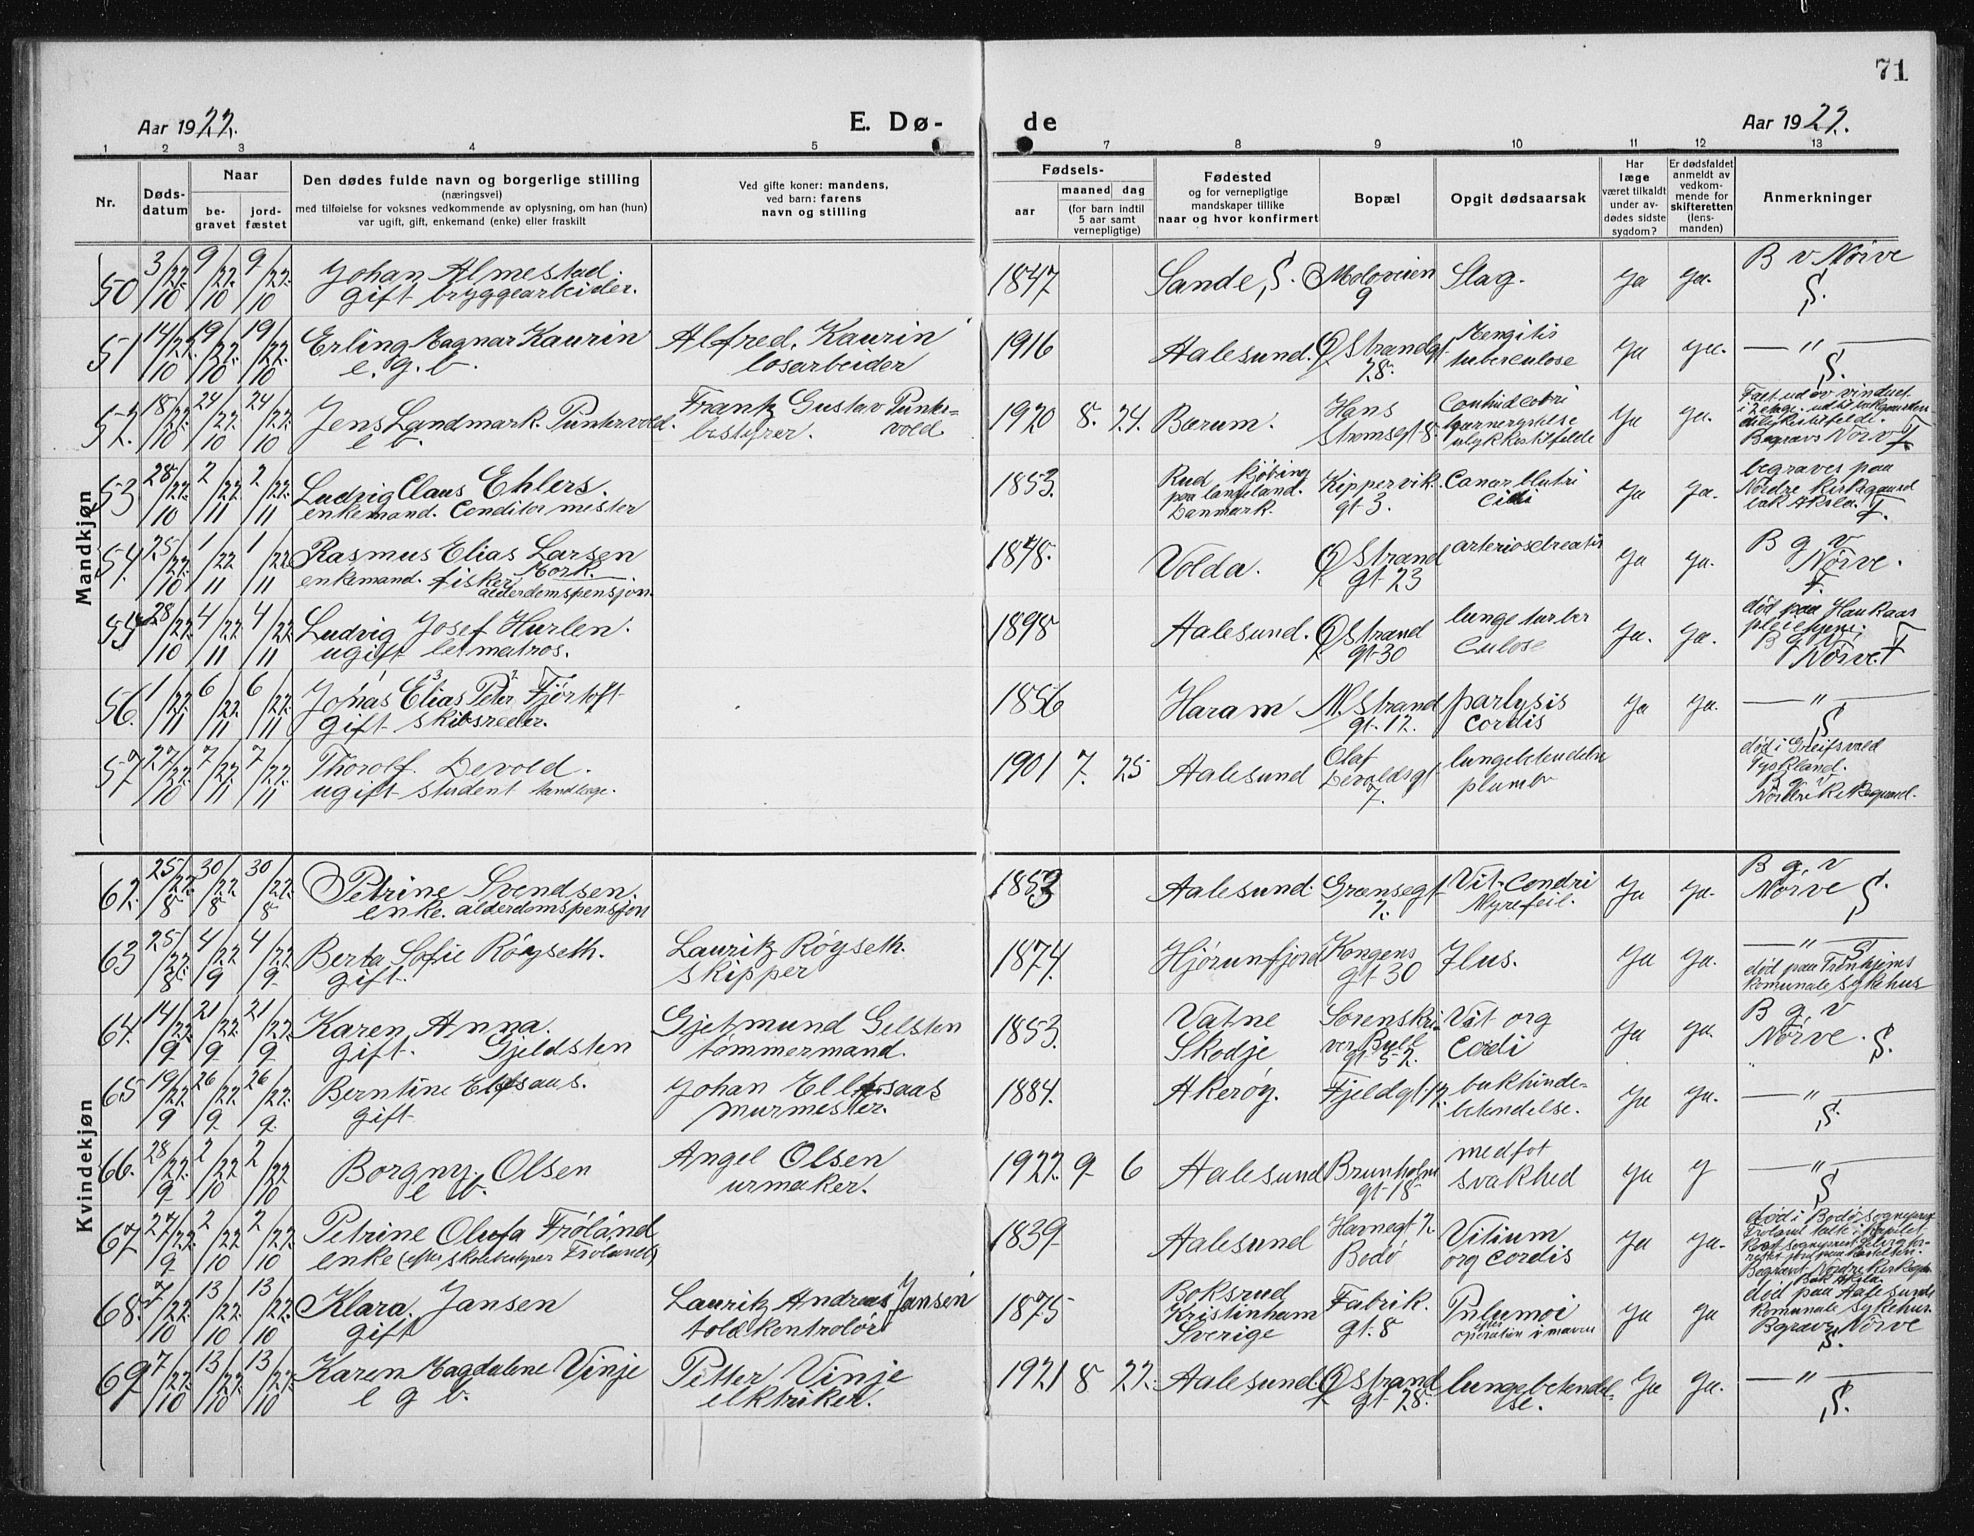 71
Aar 1922.
E. Dø-
de
Aar 1922.
1 2 3 4 5 7 8 9 10 11 12 13
Nr.
Døds-
datum
Naar
be-
gravet
jord-
fæstet
Den dødes fulde navn og borgerlige stilling
(næringsvei)
med tilføielse for voksnes vedkommende av oplysning, om han (hun)
var ugift, gift, enkemand (enke) eller fraskilt
Ved gifte koner: mandens,
ved barn: farens
navn og stilling
Fødsels-
aar
maaned dag
(for barn indtil
5 aar samt
vernepligtige)
Fødested
og for vernepligtige
mandskaper tillike
naar og hvor konfirmert
Bopæl
Opgit dødsaarsak
Har
læge
været tilkaldt
under av-
dødes sidste
sygdom?
Er dødsfaldet
anmeldt av
vedkom-
mende for
skifteretten
(lens-
manden)
Anmerkninger
Mandkjøn
50 3/10 22 9/10 22 9/10 22. Johan Almestad. 1847 Sande, S. Moloveien Slag. Ja Ja. B v Nørve
gift bryggearbeider. 9 S.
51 14/10 22 19/10 22 19/10 22. Erling Magnar Kaurin Alfred Kaurin 1916 Aalesund. Ø Strandgt Mengitis Ja Ja. — " —
e. g. b. losarbeider 28. tuberculose S.
52. 18/10 22 24/10 22 24/10 22. Jens Landmark Puntervold. Frantz Gustav Punter- 1920 8. 24. Bærum. Hans Ja Ja.
e b. bestyrer. vold Strømsgt 8. ulykkestilfelde
Begraves Nørve
53 28/10 22 2/11 22 2/11 22. Ludvig Claus Ehlers. 1853. Rud kjøbing Kippervik. Ja Ja. begraves paa
enkemand. Conditor mester paa langeland. gt 3. Nordre kirkegaard
Danmark. bak Aksla.
54. 25/10 22 1/11 22 1/11 22 Rasmus Elias Larsen 1848. Volda. Ø Strand Ja Ja. B g v
Mork.
enkemand. fisker alderdomspensjon gt 23 Nørve.
55 28/10 22 4/11 22 4/11 22 Ludvig Josef Hurlen. 1898 Aalesund. Ø Strand lunge tuber Ja. Ja. død paa Haukaas
ugift letmatros. gt 30 culose pleiehjem.
B g v Nørve
56. 1/11 22 6/11 22 6/11 22. Jonas Elias Peter Fjørtoft 1856 Haram N. Strand parlysis Ja Ja. — " —
gift skibsreder. gt. 12. cordis S
57 27/10 22. 7/11 22 7/11 22. Thorolf Devold. 1901 7. 25 Aalesund Olaf lungebetendelse Ja Ja. død i Greifsvald
ugift student tandlæge. Devoldsgt plumb Tyskland.
7. B g v
Nordre Kirkegaard.
Kvindekjøn
62. 25/8 22. 30/8 22 30/8 22. Petrine Svendsen. 1853 Aalesund. Grænsegt Vit. Condri Ja Ja. B g, v
enke. alderdomspensjon 2. Nyrefeil. Nørve S.
63 25/8 22. 4/9 22 4/9 22 Berta Sofie Røyseth. Lauritz Røyseth. 1874. Hjørunfjord Kongens Ilus. Ja Ja. — " —
gift. skipper gt 30 død paa Trønhjems
komunale sykehus
64. 14/9 22 21/9 22 21/9 22. Karen Anna. Gjetmund Gelsten 1853. Vatne Sorenskri- Vit org Ja Ja. B g, v
gift. Gjeldsten tømmermand. Skodje ver Bull Cordi Nørve. S.
gt 5-2.
65 19/9 22. 26/9 22. 26/9 22. Berntine Elfsaas. Johan Ellefsaas 1884. Akerøy. Fjeldgt 12. bukhinde- Ja Ja. — " —
gift murmester. betendelse. S.
66. 28/9 22. 2/10 22 2/10 22 Borgny Olsen Angel Olsen 1922. 9 6 Aalesund Brunholm medføt Ja J — " —
e b. urmaker. gt 18 svakhed S
67 27/9 22. 2/10 22 2/10 22. Petrine Olufa Frøland 1839 Aalesund Havnegt 2 Vitium Ja Ja. død i Bodø
enke (efter skolebestyrer Frøland) Bodø org cordis
Begravet Nordre Kirkegaard
Bak Aksla.
68. 7/10 22 13/10 22 13/10 22. Klara. Jansen Lauritz Andreas Jansen 1875 Boksrud Fabrik. Pnlumoi Ja Ja død paa Aalesunds
gift toldkontrolør Kristinham gt. 8 efter komunale sykehus.
Sverige operation i maven Bgraves Nørve
S.
69 7/10 22. 13/10 22 13/10 22. Karen Magdalene Vinje Petter Vinje 1921 8 22. Aalesund. Ø Strand lungebetendel- Ja Ja. — " —
e g b. elktriker. gt 28. se. S.